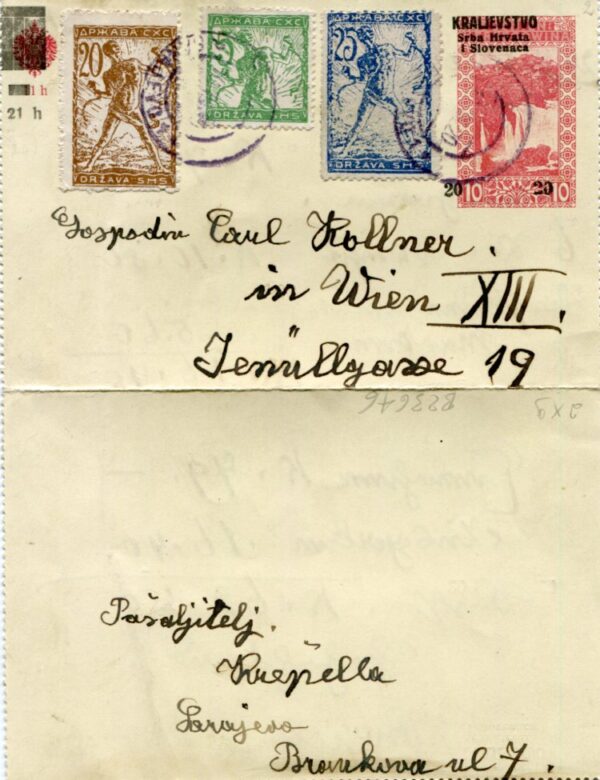 1 h
21 h
ДРЖАВА СХС
20
DRŽAVA SHS
ДРЖАВА СХС
5
DRŽAVA SHS
ДРЖАВА СХС
25
DRŽAVA SHS
KRALJEVSTVO
Srba Hrvata
i Slovenaca
20 20
10 10
Gospodin Carl Kollner.
in Wien XIII.
Jenüllgasse 19
2x9
823646
Pašaljitelj.
Krepella
Sarajevo
Brankova ul 7.